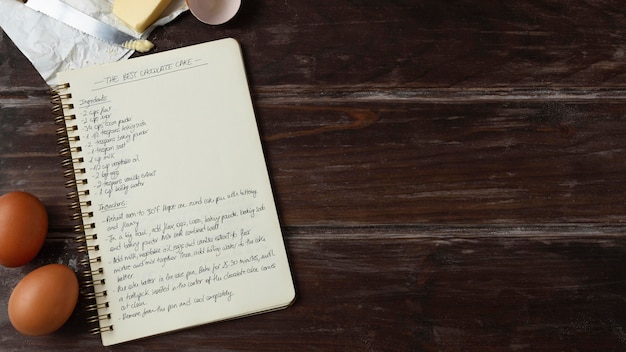 - THE BEST CHOCOLATE CAKE -
Ingredients:
- 2 cups flour
- 2 cups sugar
- 3/4 cups cocoa powder
- 2 teaspoons baking powder
- 1 teaspoon salt
- 1 cup milk
- 1/2 cup vegetable oil
- 2 big eggs
- 2 teaspoons vanilla extract
- 1 cup boiling water
Instructions:
- Preheat oven to 350F. Prepare one round cake pan with buttering
and flouring
- In a big bowl, add flour, sugar, cocoa, baking powder, baking soda
and
- Add milk, vegetable oil, eggs and vanilla extract to flour
mixture and mix together. Then, add boiling water to the cake
batter.
- Pour cake batter in the cake pan. Bake for 30 minutes, until
a toothpick inserted in the center of the chocolate cake comes
out clean.
- Remove from the pan and cool completely.